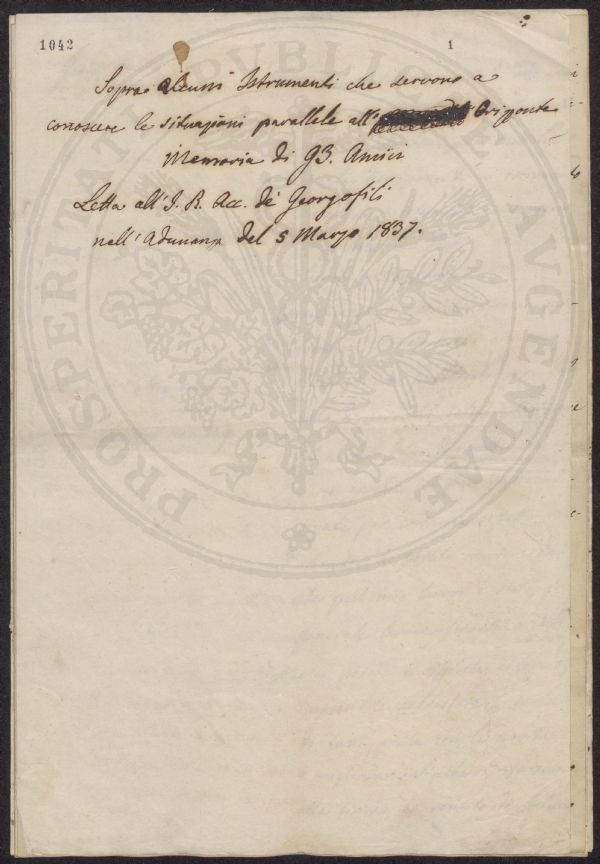 1042
1
Sopra alcuni Istrumenti che servono a
conoscere le situazioni parallele all' Orizzonte
Memoria di GB. Amici
Letta all' I. R. Acc. de' Georgofili
nell' Adunanza del 5 Marzo 1837.
PROSPERITATI PVBLICAE AVGENDAE